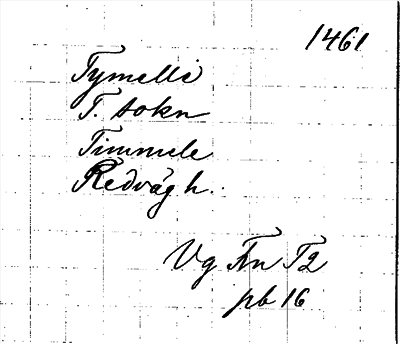 1461
Tymelli
T. sokn
Timmele
Redvägh.
Vg Fn T2
pb 16